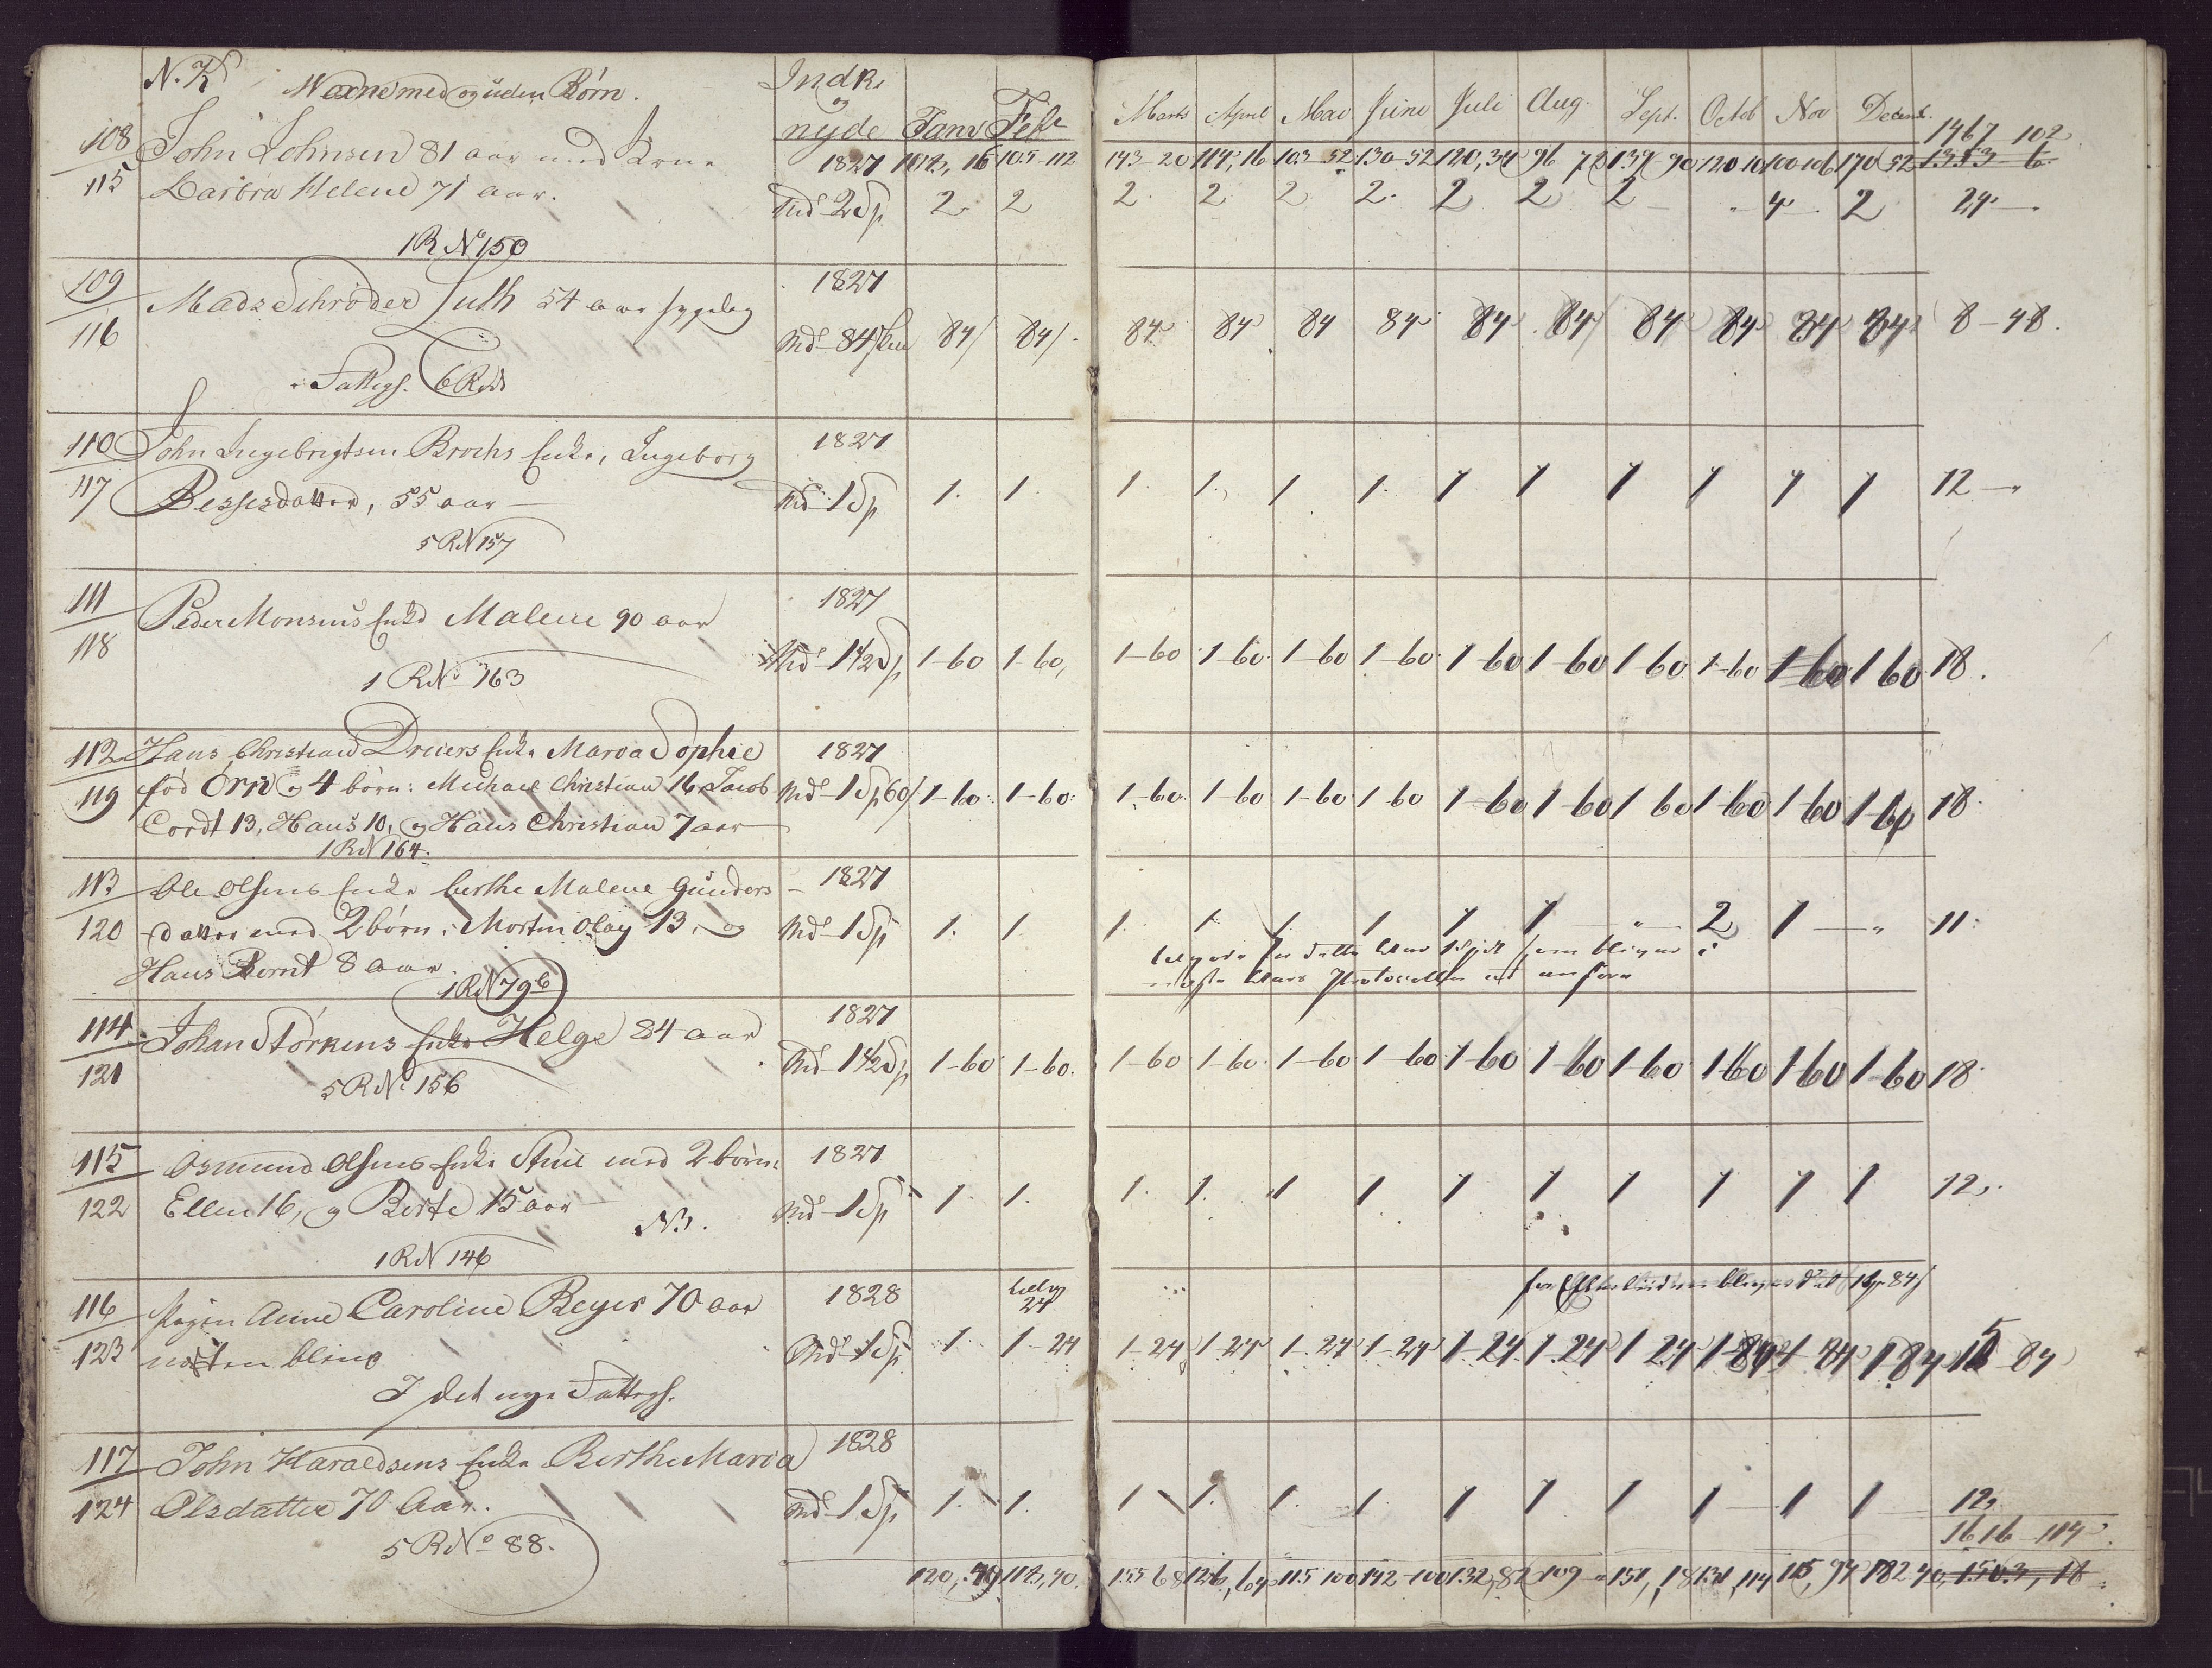 N. K. Voxne med og uden Børn. Indk. og nyde Janv Febr Marts April Mai Juni Juli Aug. Sept. Octob Nov Decemb.
1467 102
108 John Johnsen 81 aar med Kone 1827 105-112 143-20 114, 16 103-52 130-52 120, 34 96 72 139 90 120 10 100 106 170 52 1353-6
115 Barbra Helene 71 aar. Md 2 Sp 2 2 2 2 2 2 2 2 2 4 2 24
1 R No 150
109 Mads Schrøder Juth 54 aar sygelig 1827
116 Md 84 84 84 84 84 84 84 84 84 84 84 84 84 8-48.
Fattigh. 6 R
110 John Ingebrigtsen Brochs Enke, Ingeborg 1827
117 Bessesdatter, 55 aar Md 1 Sp 1. 1. 1. 1. 1 1. 1 1 1 1 1 1 12
5 R N 157
111 Peder Monsens Enke Malene 90 aar 1827
118 Md 1 1/2 Sp 1-60 1-60 1-60 1-60 1-60 1-60 1-60 1-60 1-60 1-60 1-60 1-60 18.
1 R No 163
112 Hans Christian Dreiers Enke Maroa Sophie 1827
119 fød Örn og 4 børn: Michael Christian 16, Jacob Md 1 Sp 60 1-60 1-60 1-60 1-60 1-60 1-60 1-60 1-60 1-60 1-60 1-60 1-60 18
Cordt 13, Hans 10, og Hans Christian 7 aar
1 R N 164.
113 Ole Olsens Enke berthe Malene Gunders 1827
120 datter med 2 børn: Morten Olay 13, og Md 1 Sp 1. 1 1. 1 1 1 1 1 2 1 11
Hans Bernt 8 aar. for dette Aar som bliver i
Aars Protocollen at anføre
1 R N 79 b
114 Johan Størkens Enke Helge 84 aar 1827
121 Md 1 1/2 Sp 1-60 1-60 1-60 1-60 1-60 1-60 1-60 1-60 1-60 1-60 1-60 1-60 18
5 R No 156
115 Osmund Olsens Enke med 2 børn: 1827
122 Ellen 16, og Berte 15 aar Md 1 Sp 1. 1. 1. 1. 1 1 1 1 1 1 1 1 12
NB.
1 R N 146
116 Pigen Anne Caroline Beyer 70 aar 1828 24
123 næsten blind Md 1 Sp 1 1-24 1-24 1-24 1-24 1-24 1-24 1-24 1-24 1-84 1-84 1-84 15-84
I det nye Fattigh.
117 John Haraldsens Enke Berthe Maroa 1828
124 Olsdatter 70 Aar. Md 1 Sp 1. 1. 1 1. 1. 1. 1 1 1 1 1 1 12
5 R No 88.
1616-114
120, 112, 40. 155 68 126, 64 115 100 142-100 132, 82 109 151, 18 131, 114 115, 94 182 40 1503, 18